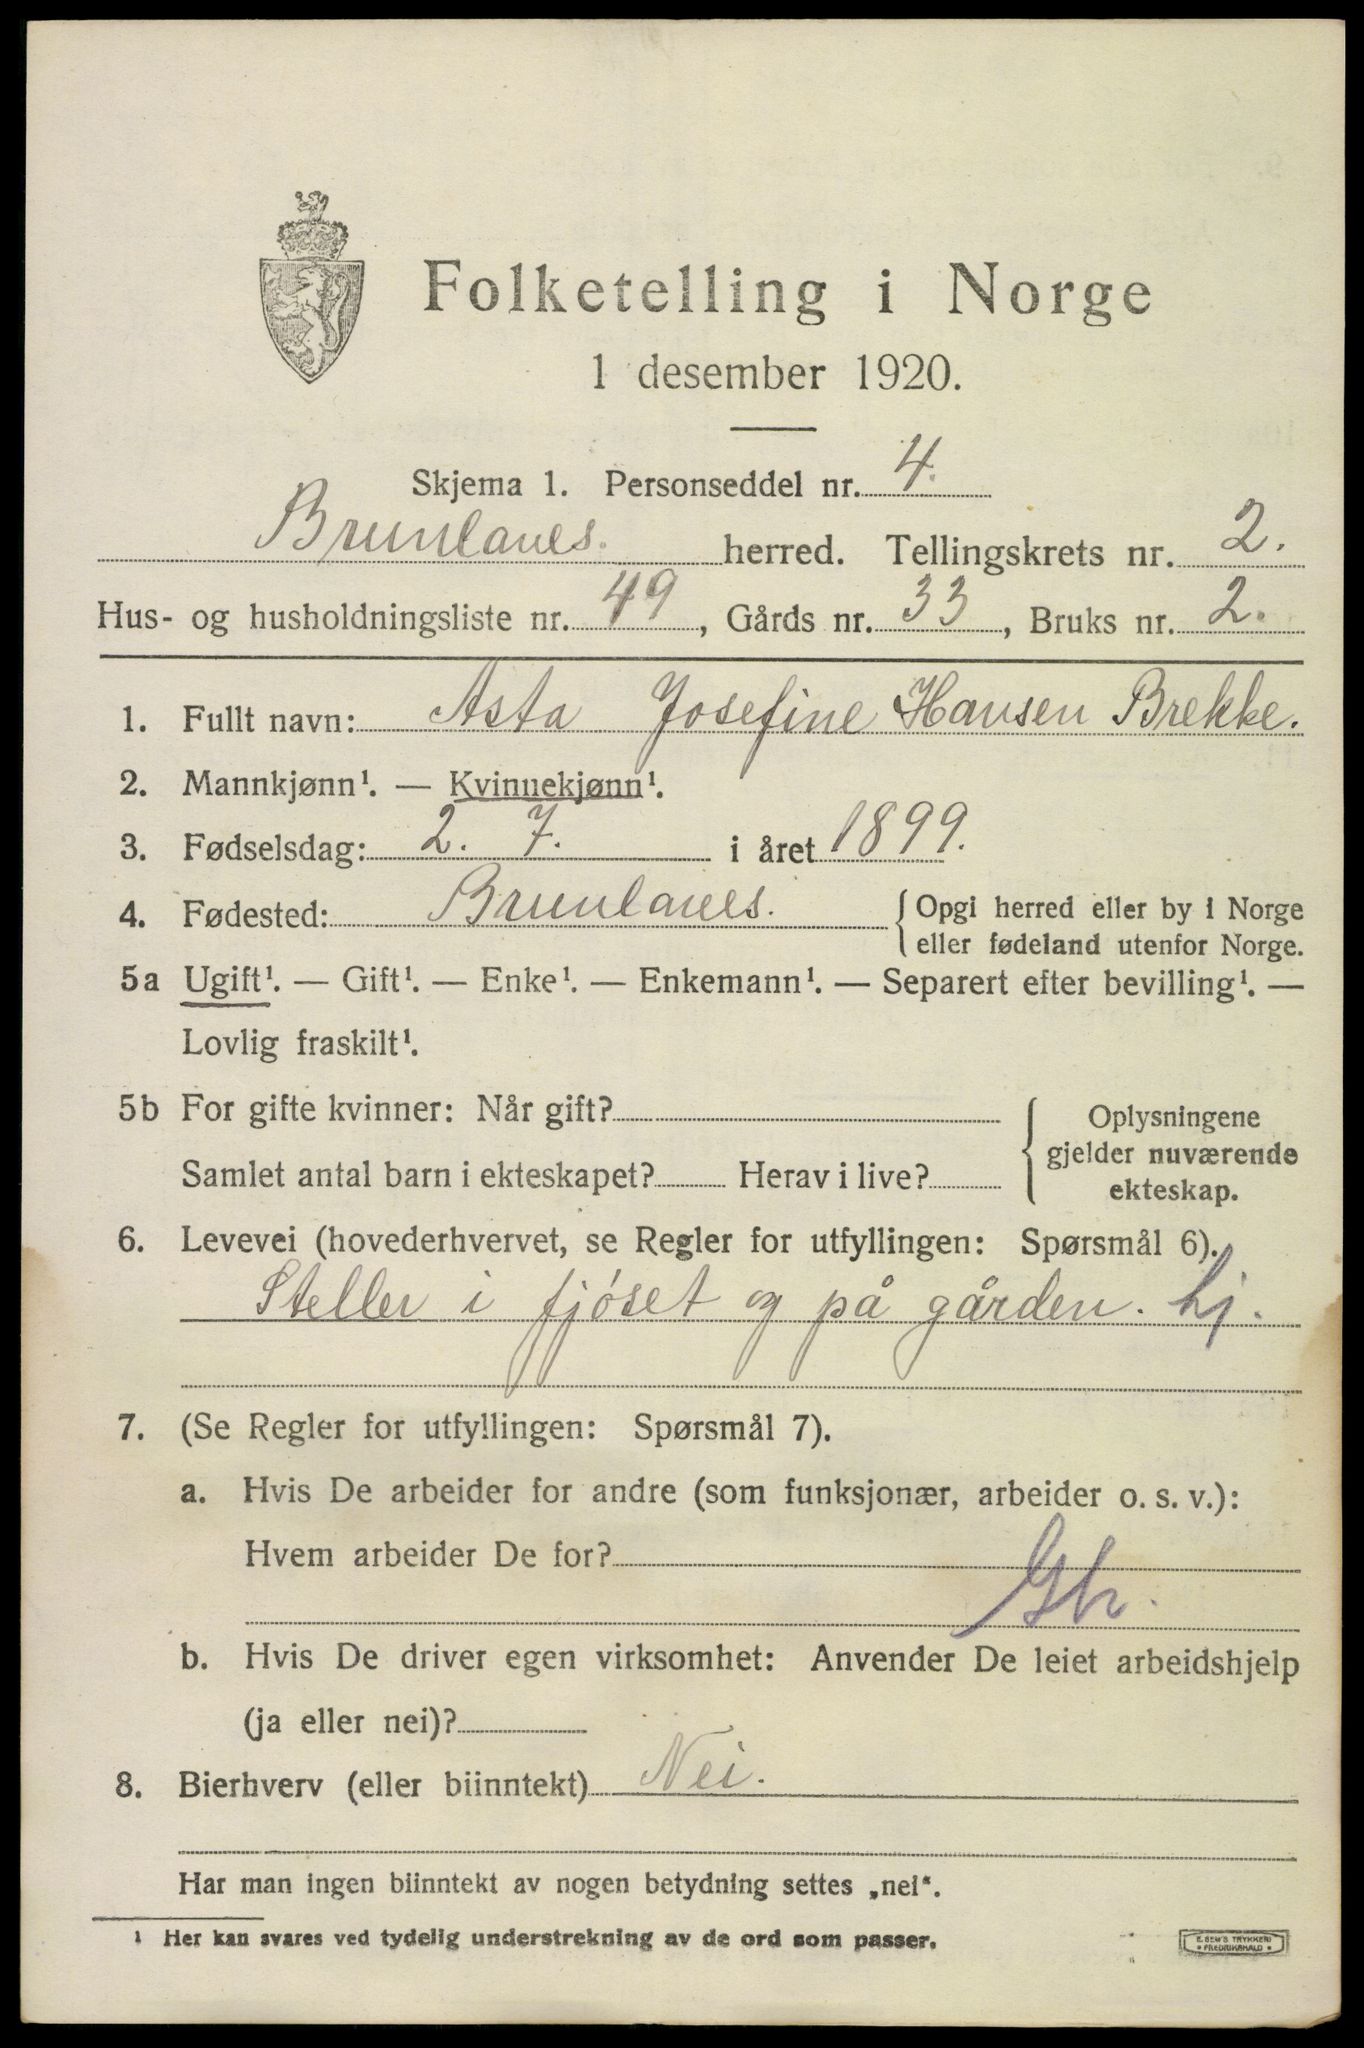 Folketelling i Norge
1 desember 1920.
Skjema 1. Personseddel nr. 4.
Brunlanes. herred. Tellingskrets nr. 2.
Hus- og husholdningsliste nr. 49, Gårds nr. 33, Bruks nr. 2.
1. Fullt navn: Asta Josefine Hansen Brekke.
2. Mannkjønn¹. — Kvinnekjønn¹.
3. Fødselsdag: 2. 7. i året 1899.
4. Fødested: Brunlanes. { Opgi herred eller by i Norge
eller fødeland utenfor Norge.
5a Ugift¹. — Gift¹. — Enke¹. — Enkemann¹. — Separert efter bevilling¹. —
Lovlig fraskilt¹.
5b For gifte kvinner: Når gift?
Samlet antal barn i ekteskapet? Herav i live?
{ Oplysningene
gjelder nuværende
ekteskap.
6. Levevei (hovederhvervet, se Regler for utfyllingen: Spørsmål 6).
Steller i fjóset og på gården. hj.
7. (Se Regler for utfyllingen: Spørsmål 7).
a. Hvis De arbeider for andre (som funksjonær, arbeider o. s. v.):
Hvem arbeider De for?
Gbr.
b. Hvis De driver egen virksomhet: Anvender De leiet arbeidshjelp
(ja eller nei)?
8. Bierhverv (eller biinntekt) Nei.
Har man ingen biinntekt av nogen betydning settes „nei“.
¹ Her kan svares ved tydelig understrekning av de ord som passer.
E. SEM'S TRYKKERI
FREDRIKSHALD